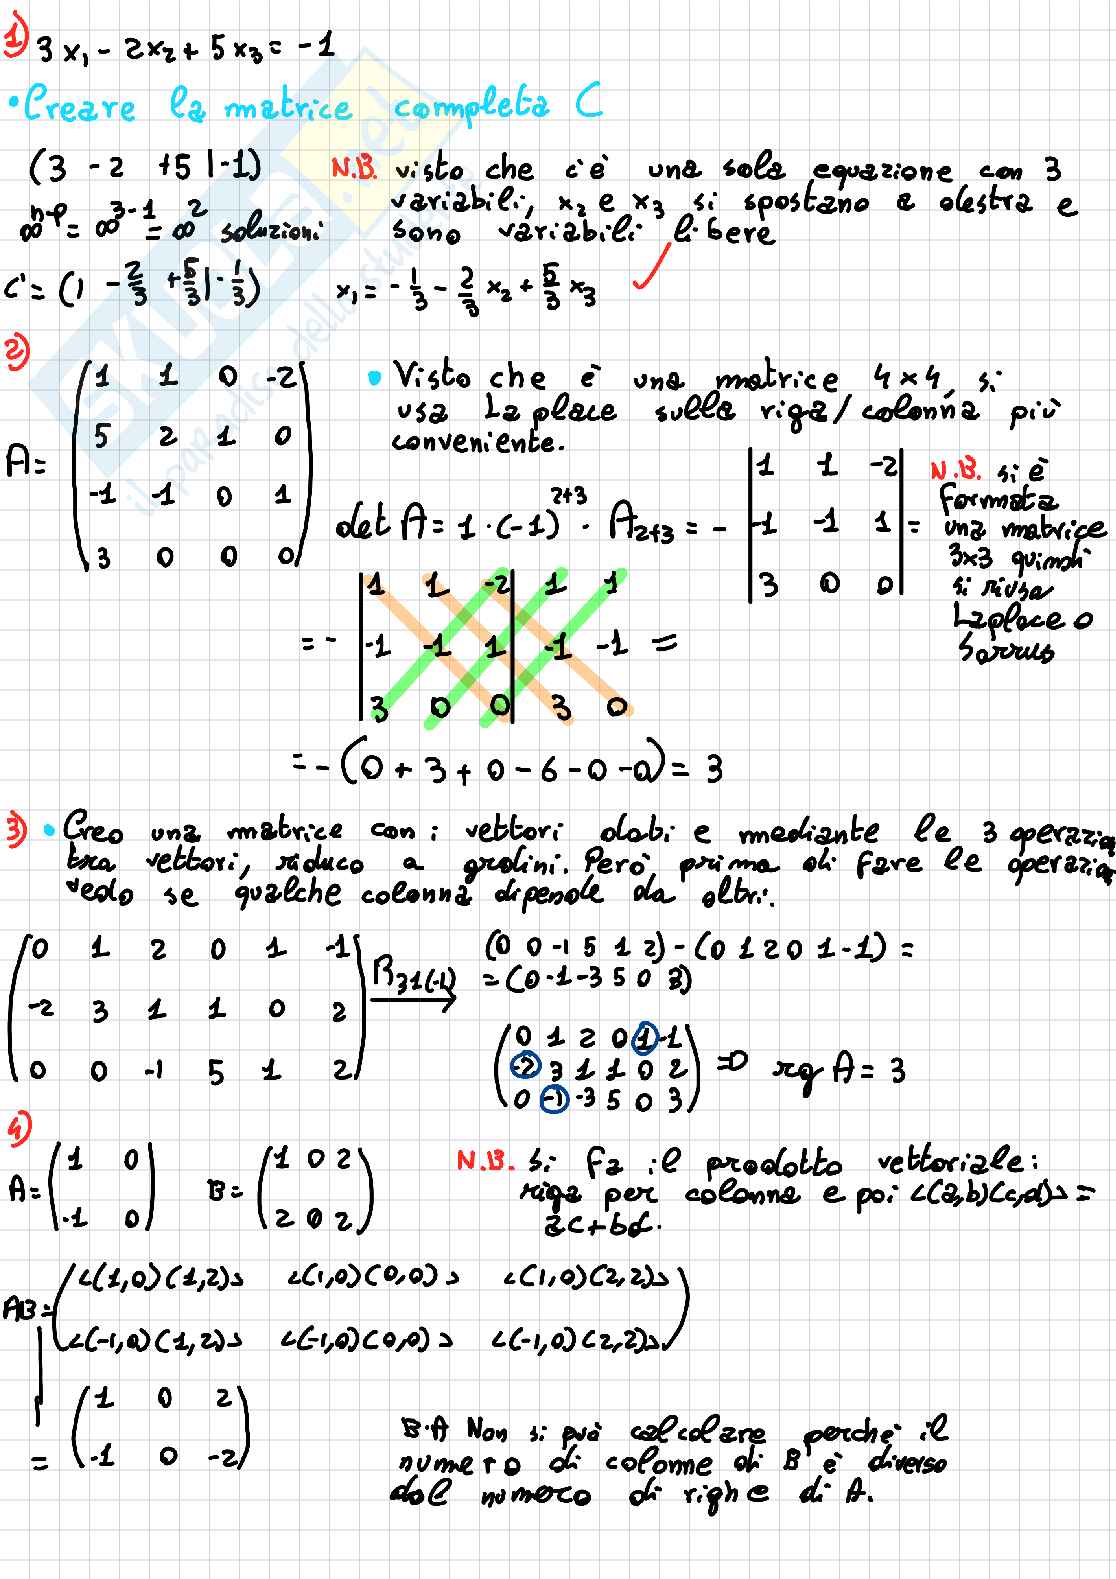 1) 3x₁ - 2x₂ + 5x₃ = -1
• Creare la matrice completa C
(3 -2 +5 | -1)
N.B. visto che c'è una sola equazione con 3
variabili, x₂ e x₃ si spostano a destra e
sono variabili libere
∞ⁿ⁻ᵖ = ∞³⁻¹ = ∞² soluzioni
C' = (1 -2/3 +5/3 | -1/3)
x₁ = -1/3 - 2/3 x₂ + 5/3 x₃
2)
A =
1 1 0 -2
5 2 1 0
-1 -1 0 1
3 0 0 0
• Visto che è una matrice 4×4, si
usa La place sulla riga/colonna più
conveniente.
det A = 1 · (-1)²⁺³ · A₂₊₃ = -
1 1 -2
-1 -1 1
3 0 0
=
N.B. si è
formata
una matrice
3×3 quindi
si riusa
Laplace o
Sarrus
= -
1 1 -2 1 1
-1 -1 1 -1 -1
3 0 0 3 0
=
= - (0 + 3 + 0 - 6 - 0 - 0) = 3
3) • Creo una matrice con i vettori dati e mediante le 3 operazio
tra vettori, riduco a gradini. Però, prima di fare le operazion
vedo se qualche colonna dipende da altri.
0 1 2 0 1 -1
-2 3 1 1 0 2
0 0 -1 5 1 2
R₃₁(-1)
(0 0 -1 5 1 2) - (0 1 2 0 1 -1) =
= (0 -1 -3 5 0 3)
0 1 2 0 1 -1
-2 3 1 1 0 2
0 -1 -3 5 0 3
⇒ rg A = 3
4)
A =
1 0
-1 0
B =
1 0 2
2 0 2
N.B. si fa il prodotto vettoriale:
riga per colonna e poi <(a,b)(c,d)> =
ac+bd.
AB =
<(1,0)(1,2)> <(1,0)(0,0)> <(1,0)(2,2)>
<(-1,0)(1,2)> <(-1,0)(0,0)> <(-1,0)(2,2)>
=
1 0 2
-1 0 -2
B·A Non si può calcolare perché il
numero di colonne di B è diverso
dal numero di righe di A.
SKUOLA.net
il paradiso dello studente